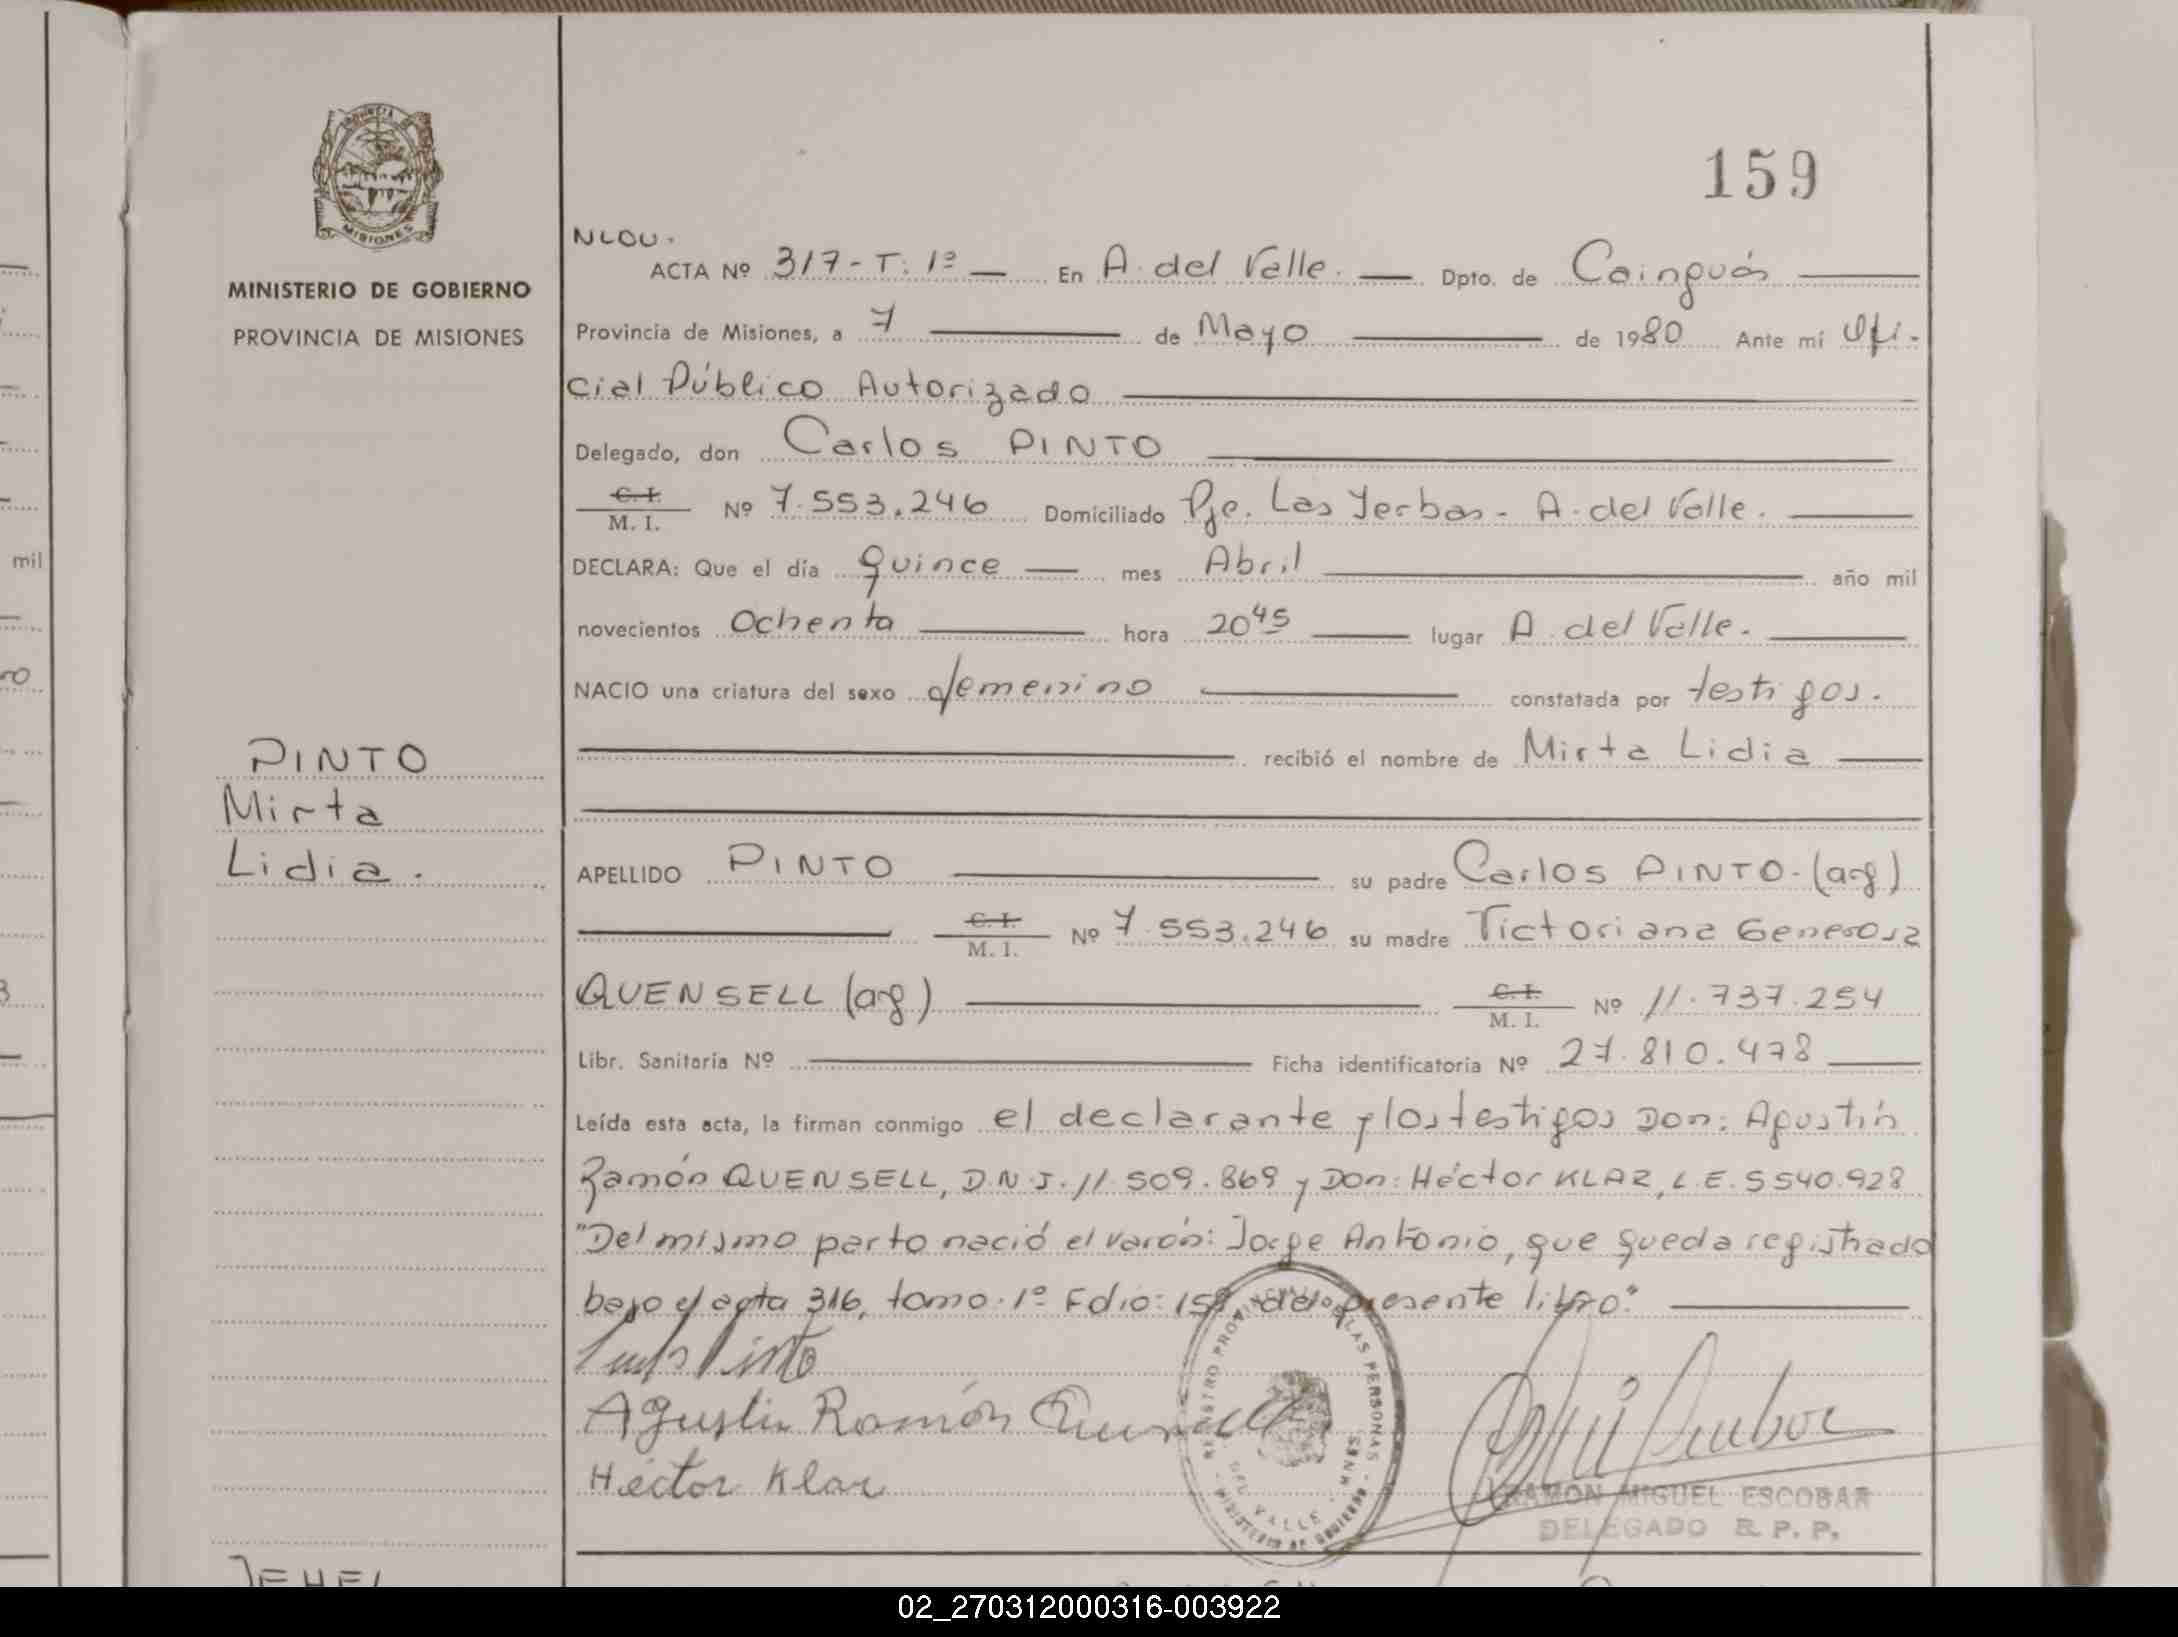 159
PROVINCIA DE
MISIONES
MINISTERIO DE GOBIERNO
PROVINCIA DE MISIONES
NLOU.
ACTA Nº 317-T: 1º — En A. del Valle. — Dpto. de Cainguás
Provincia de Misiones, a 7 de Mayo de 1980 Ante mí Ofi-
cial Público Autorizado
Delegado, don Carlos PINTO
C. I.
M. I. Nº 7.553.246 Domiciliado Pje. Las Yerbas - A. del Valle.
DECLARA: Que el día quince — mes Abril año mil
novecientos Ochenta hora 20 45 lugar A. del Valle.
NACIO una criatura del sexo femenino constatada por testigos.
recibió el nombre de Mirta Lidia
PINTO
Mirta
Lidia.
APELLIDO PINTO su padre Carlos PINTO. (arg)
C. I.
M. I. Nº 7.553.246 su madre Victoriana Generosa
QUENSELL (arg) C. I.
M. I. Nº 11.737.254
Libr. Sanitaria Nº Ficha identificatoria Nº 27.810.478
Leída esta acta, la firman conmigo el declarante y los testigos Don: Agustín
Ramón QUENSELL, D.N.I. 11.509.869 y Don: Héctor KLAR, L.E. 5540.928
"Del mismo parto nació el varón: Jorge Antonio, que queda registrado
bajo el acta 316, tomo 1º Folio: 159 del presente libro."
Pinto
Agustin Ramón Quensell
Héctor Klar
REGISTRO PROVINCIAL DE LAS PERSONAS
DEL VALLE - MNES
MINISTERIO DE GOBIERNO
RAMON MIGUEL ESCOBAR
DELEGADO R. P. P.
mil
02_270312000316-003922